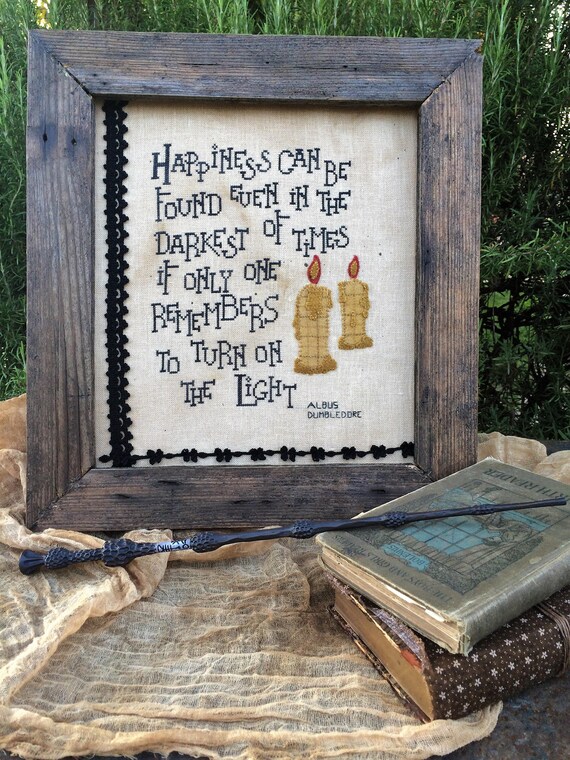 HAPPINESS CAN BE
FOUND EVEN IN THE
DARKEST OF TIMES
if ONLY ONE
REMEMBERS
TO TURN ON
THE LIGHT
ALBUS
DUMBLEDORE